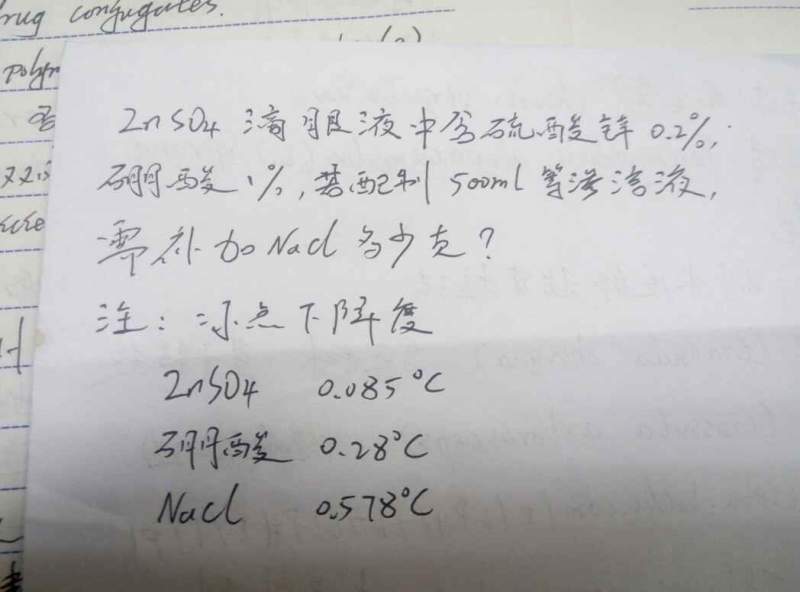 rug conjugates.
ZnSO4 滴眼液中含硫酸锌 0.2%,
硼酸 1%, 若配制 500ml 等渗溶液,
需补加 NaCl 多少克?
注: 冰点下降度
ZnSO4 0.085°C
硼酸 0.28°C
NaCl 0.578°C